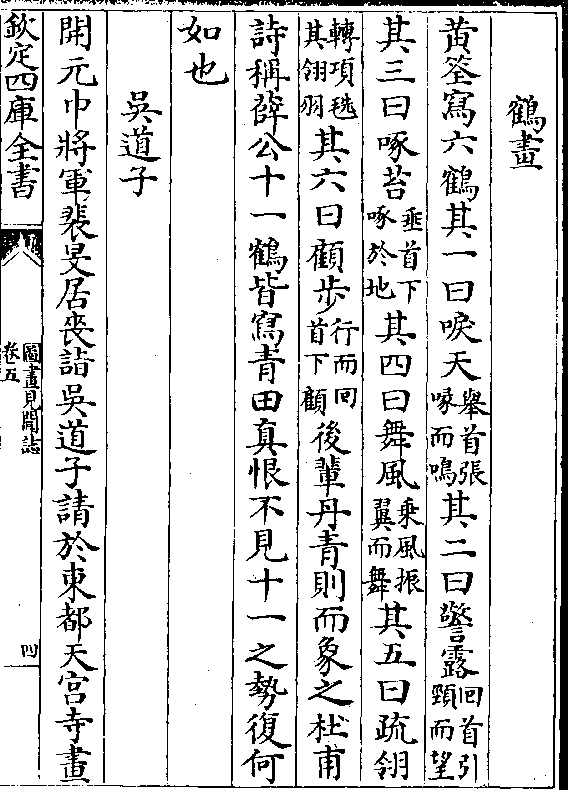 鶴畫
黄筌寫六鶴其一曰唳天舉首張喙而鳴其二曰警露回首引頸而望
其三曰啄苔垂首下啄於地其四曰舞風乘風振翼而舞其五曰疏翎
轉項毨其翎羽其六曰顧步行而回首下顧後輩丹青則而象之杜甫
詩稱薛公十一鶴皆寫青田真恨不見十一之勢復何
如也
吳道子
開元中將軍裴旻居喪詣吳道子請於東都天宮寺畫
欽定四庫全書
圖畫見聞誌
卷五
四